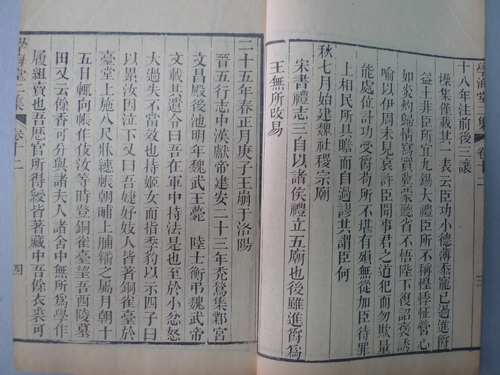 十八年注前後三讓
操集僅載其一表云臣功小德薄忝寵已過進爵
益土非臣所宜九錫大禮臣所不稱惶悸怔營心
如炎灼歸情寫實冀蒙聽省不悟陛下復詔褒誘
喻以伊周未見哀許臣聞事君之道犯而勿欺量
能處位計功受爵苟所不堪有殞無從加臣待罪
上相民所具瞻而自過謬其謂臣何
秋七月始建魏社稷宗廟
宋書禮志三自以諸侯禮立五廟也後雖進爵爲
王無所改易
二十五年春正月庚子王崩于洛陽
晉五行志中漢獻帝建安二十三年禿鶖集鄴宮
文昌殿後池明年魏武王薨 陸士衡弔魏武帝
文載其遺令曰吾在軍中持法是也至於小忿怒
大過失不當效也持姬女而指季豹以示四子曰
以累汝因泣下又曰吾婕妤妓人皆著銅雀臺於
臺堂上施八尺牀繐帳朝晡上脯糒之屬月朝十
五日輒向帳作伎汝等時登銅雀臺望吾西陵墓
田又云餘香可分與諸夫人諸舍中無所爲學作
履組賣也吾歷官所得綬皆著藏中吾餘衣裘可
學海堂二集 卷十二 四